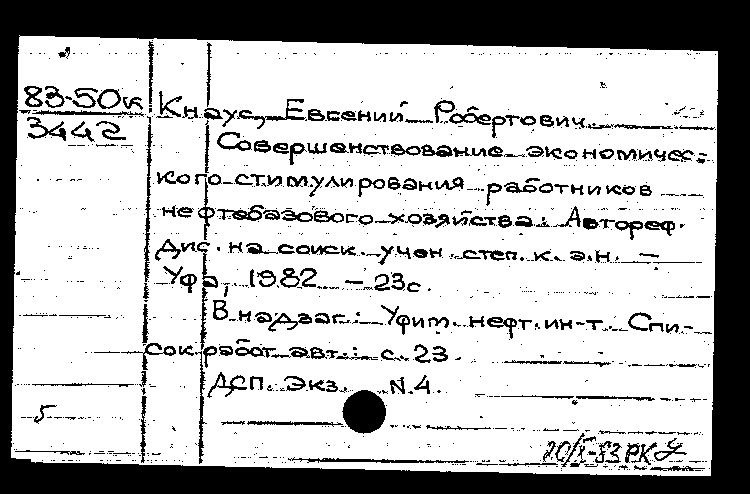 83-50к
3442
Кнаус, Евгений Робертович
Совершенствование экономичес-
кого стимулирования работников
нефтебазового хозяйства: Автореф.
Дис. на соиск. учен. степ. к. э.н. —
Уфа, 1982 – 23с.
В надзаг.: Уфим. нефт. ин-т. Спи-
сок работ авт.: с. 23.
ДСП. Экз. N.4.
5
20/X-83 РК